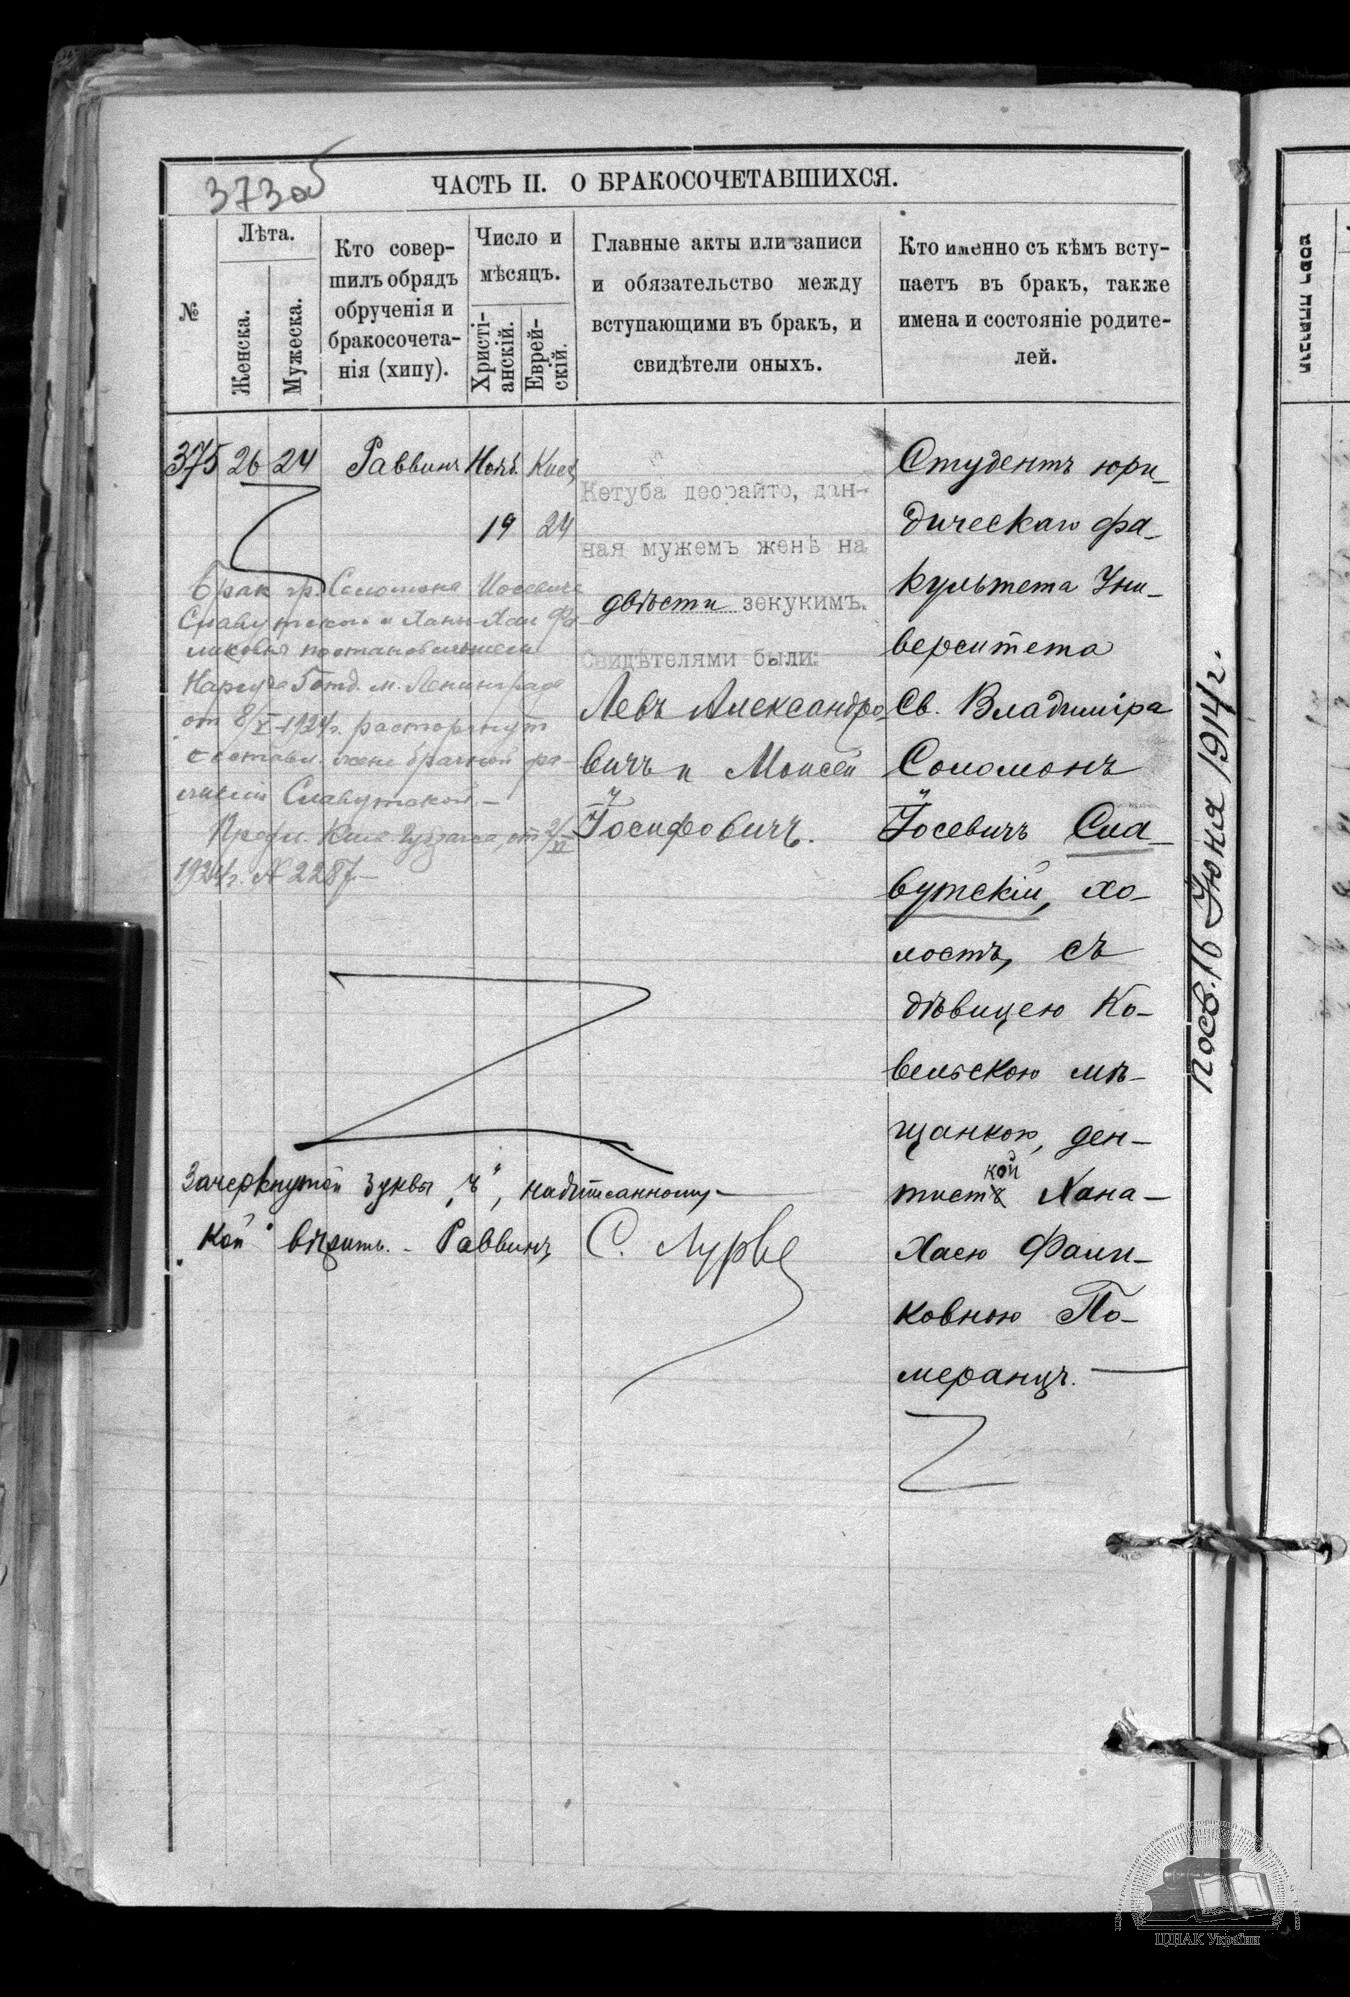 373об
ЧАСТЬ II. О БРАКОСОЧЕТАВШИХСЯ.
№
Лѣта.
Женска.
Мужеска.
Кто совер-
шилъ обрядъ
обрученія и
бракосочета-
нія (хипу).
Число и
мѣсяцъ.
Христі-
анскій.
Еврей-
скій.
Главные акты или записи
и обязательство между
вступающими въ бракъ, и
свидѣтели оныхъ.
Кто именно съ кѣмъ всту-
паетъ въ бракъ, также
имена и состояніе родите-
лей.
375 26 24 Раввинъ Нояб. Кисл.
19 24
Кетуба деорайто, дан-
ная мужемъ женѣ на
двѣсти зекукимъ.
Свидѣтелями были:
Левъ Александро
вичъ и Моисей
Іосифовичъ.
Студентъ юри-
дическаго фа-
культета Уни-
верситета
Св. Владиміра
Соломонъ
Іосевичъ Сла-
вутскій, хо-
лостъ, съ
дѣвицею Ко-
вельскою мѣ-
щанкою, ден-
кой
тистъ Хана-
Хаею Фали-
ковною По-
меранцъ.
Брак гр. Соломона Иосевича
Славутского и Ханы-Хаи Фа-
ликовны постановлением
Нарсуда 6 отд. м. Ленинграда
от 8/V-1924г. расторгнут
с оставл. жене брачной фа-
милии Славутской.-
1924г. № 2287-
Зачеркнутой буквы „ъ", надписанному
„кой" вѣрить. - Раввинъ С. Лурье
посв. 16 Іюня 1914 г.
ЦДІАК України